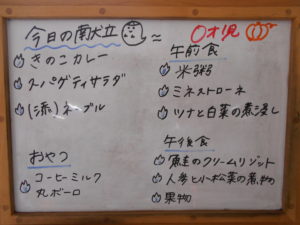 今日の献立
きのこカレー
スパゲティサラダ
(添)ネーブル
おやつ
コーヒーミルク
丸ボーロ
0才児
午前食
米粥
ミネストローネ
ツナと白菜の煮浸し
午後食
鮭のクリームリゾット
人参と小松菜の煮物
果物